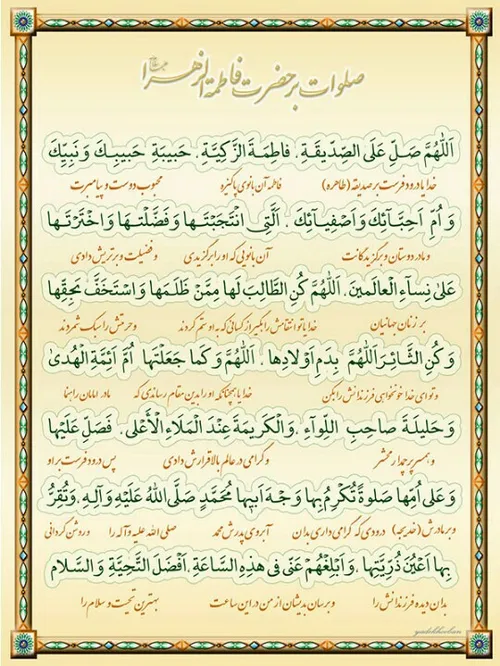 صلوات بر حضرت فاطمة الزهرا
اَللّٰهُمَّ صَلِّ عَلَی الصِّدّیقَةِ. فاطِمَةَ الزَّکِیَّةِ. حَبیبَةِ حَبیبِکَ وَ نَبِیِّکَ
خدایا درود فرست بر صدیقه (طاهره) فاطمه آن بانوی پاکیزه محبوب دوست و پیامبرت
وَ اُمِّ اَحِبّٰآئِکَ وَ اَصْفِیٰآئِکَ. اَلَّتِی انْتَجَبْتَهٰا وَ فَضَّلْتَهٰا وَ اخْتَرْتَهٰا
و مادر دوستان و برگزیدگانت آن بانوئی که او را برگزیدی و فضیلت و برتریش دادی
عَلیٰ نِسآءِ الْعالَمینَ. اَللّٰهُمَّ کُنِ الطّالِبَ لَها مِمَّنْ ظَلَمَها وَ اسْتَخَفَّ بِحَقِّها
بر زنان جهانیان خدایا تو انتقامش را بگیر از کسانی که به او ستم کردند و حرمتش را سبک شمردند
وَ کُنِ الثّائِرَ اَللّٰهُمَّ بِدَمِ اَوْلادِها. اَللّٰهُمَّ وَ کَما جَعَلْتَها اُمَّ اَئِمَّةِ الْهُدیٰ
و تو ای خدا خونخواهی فرزندانش را بکن خدایا همچنانکه او را بدین مقام رساندی که مادر امامان راهنما
وَ حَلیلَةَ صاحِبِ اللِّوآءِ. وَ الْکَریمَةَ عِنْدَ الْمَلَاءِ الْاَعْلی. فَصَلِّ عَلَیْها
و همسر پرچمدار محشر و گرامی در عالم بالا قرارش دادی پس درود فرست بر او
وَ عَلی اُمِّها صَلوةً تُکْرِمُ بِها وَجْهَ اَبیها مُحَمَّدٍ صَلَّی اللّٰهُ عَلَیْهِ وَ آلِهِ. وَ تُقِرُّ
و بر مادرش (خدیجه) درودی که گرامی داری بدان آبروی پدرش محمد صلی الله علیه و آله را و روشن گردانی
بِها اَعْیُنَ ذُرِّیَّتِها. وَ اَبْلِغْهُمْ عَنّی فی هٰذِهِ السّاعَةِ. اَفْضَلَ التَّحِیَّةِ وَ السَّلام
بدان دیده فرزندانش را و برسان بدیشان از من در این ساعت بهترین تحیت و سلام را